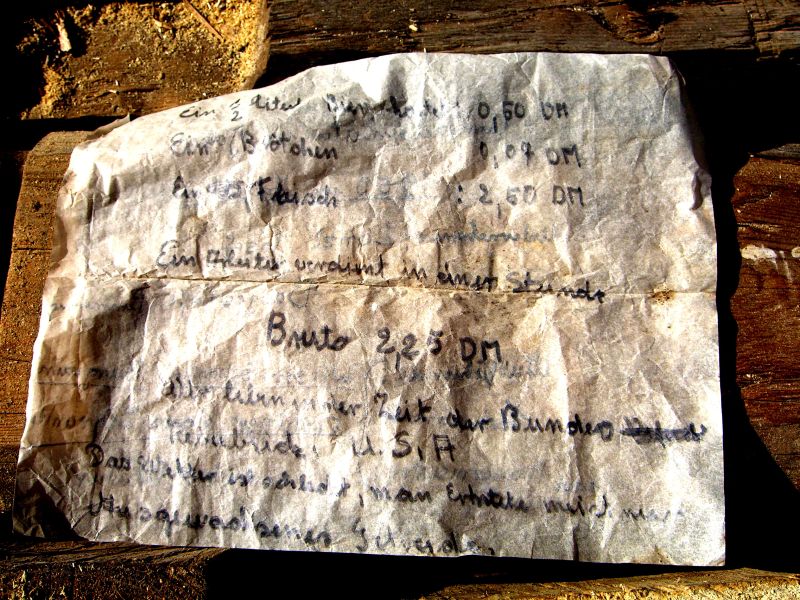 Ein 1/2 Liter : 0,50 DM
Ein Brötchen 0,07 DM
Ein Fleisch : 2,50 DM
Ein Arbeiter verdint in einer Stunde
Bruto 2,25 DM
Wir leben in der Zeit der Bundes
Republick. U.S.A
Das Wetter ist schlecht, man Erhntete meist nur
Ausgewachsenes Getreide.